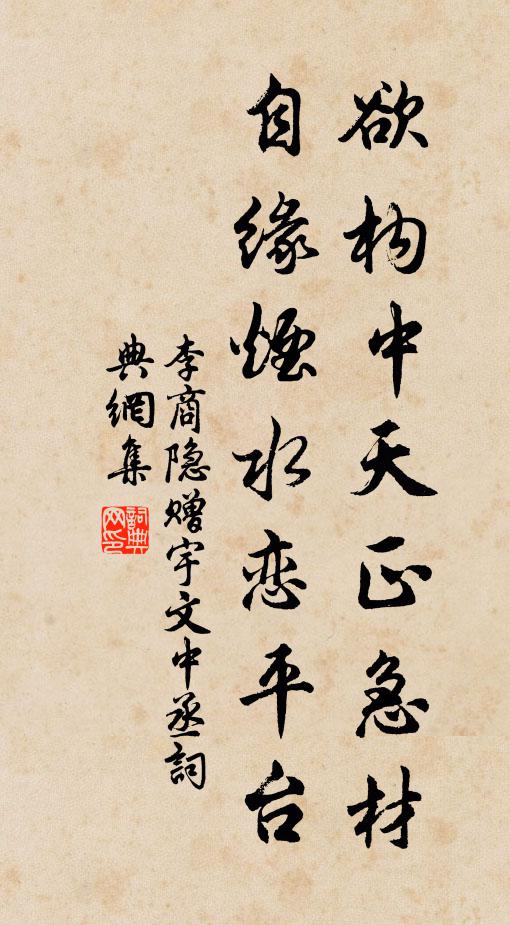 欲构中天正急材
自缘烟水恋平台
李商隐赠宇文中丞詞
典網集
詞典
网印